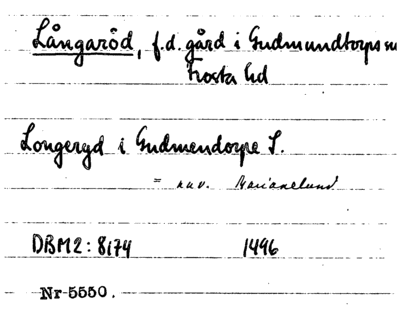 Långaröd, f.d. gård i Gudmundtorps sn
Frosta hd
Longeryd i Gudmendorpe S.
= nuv. Marianelund.
DBM2: 8174 1496
Nr 5550.